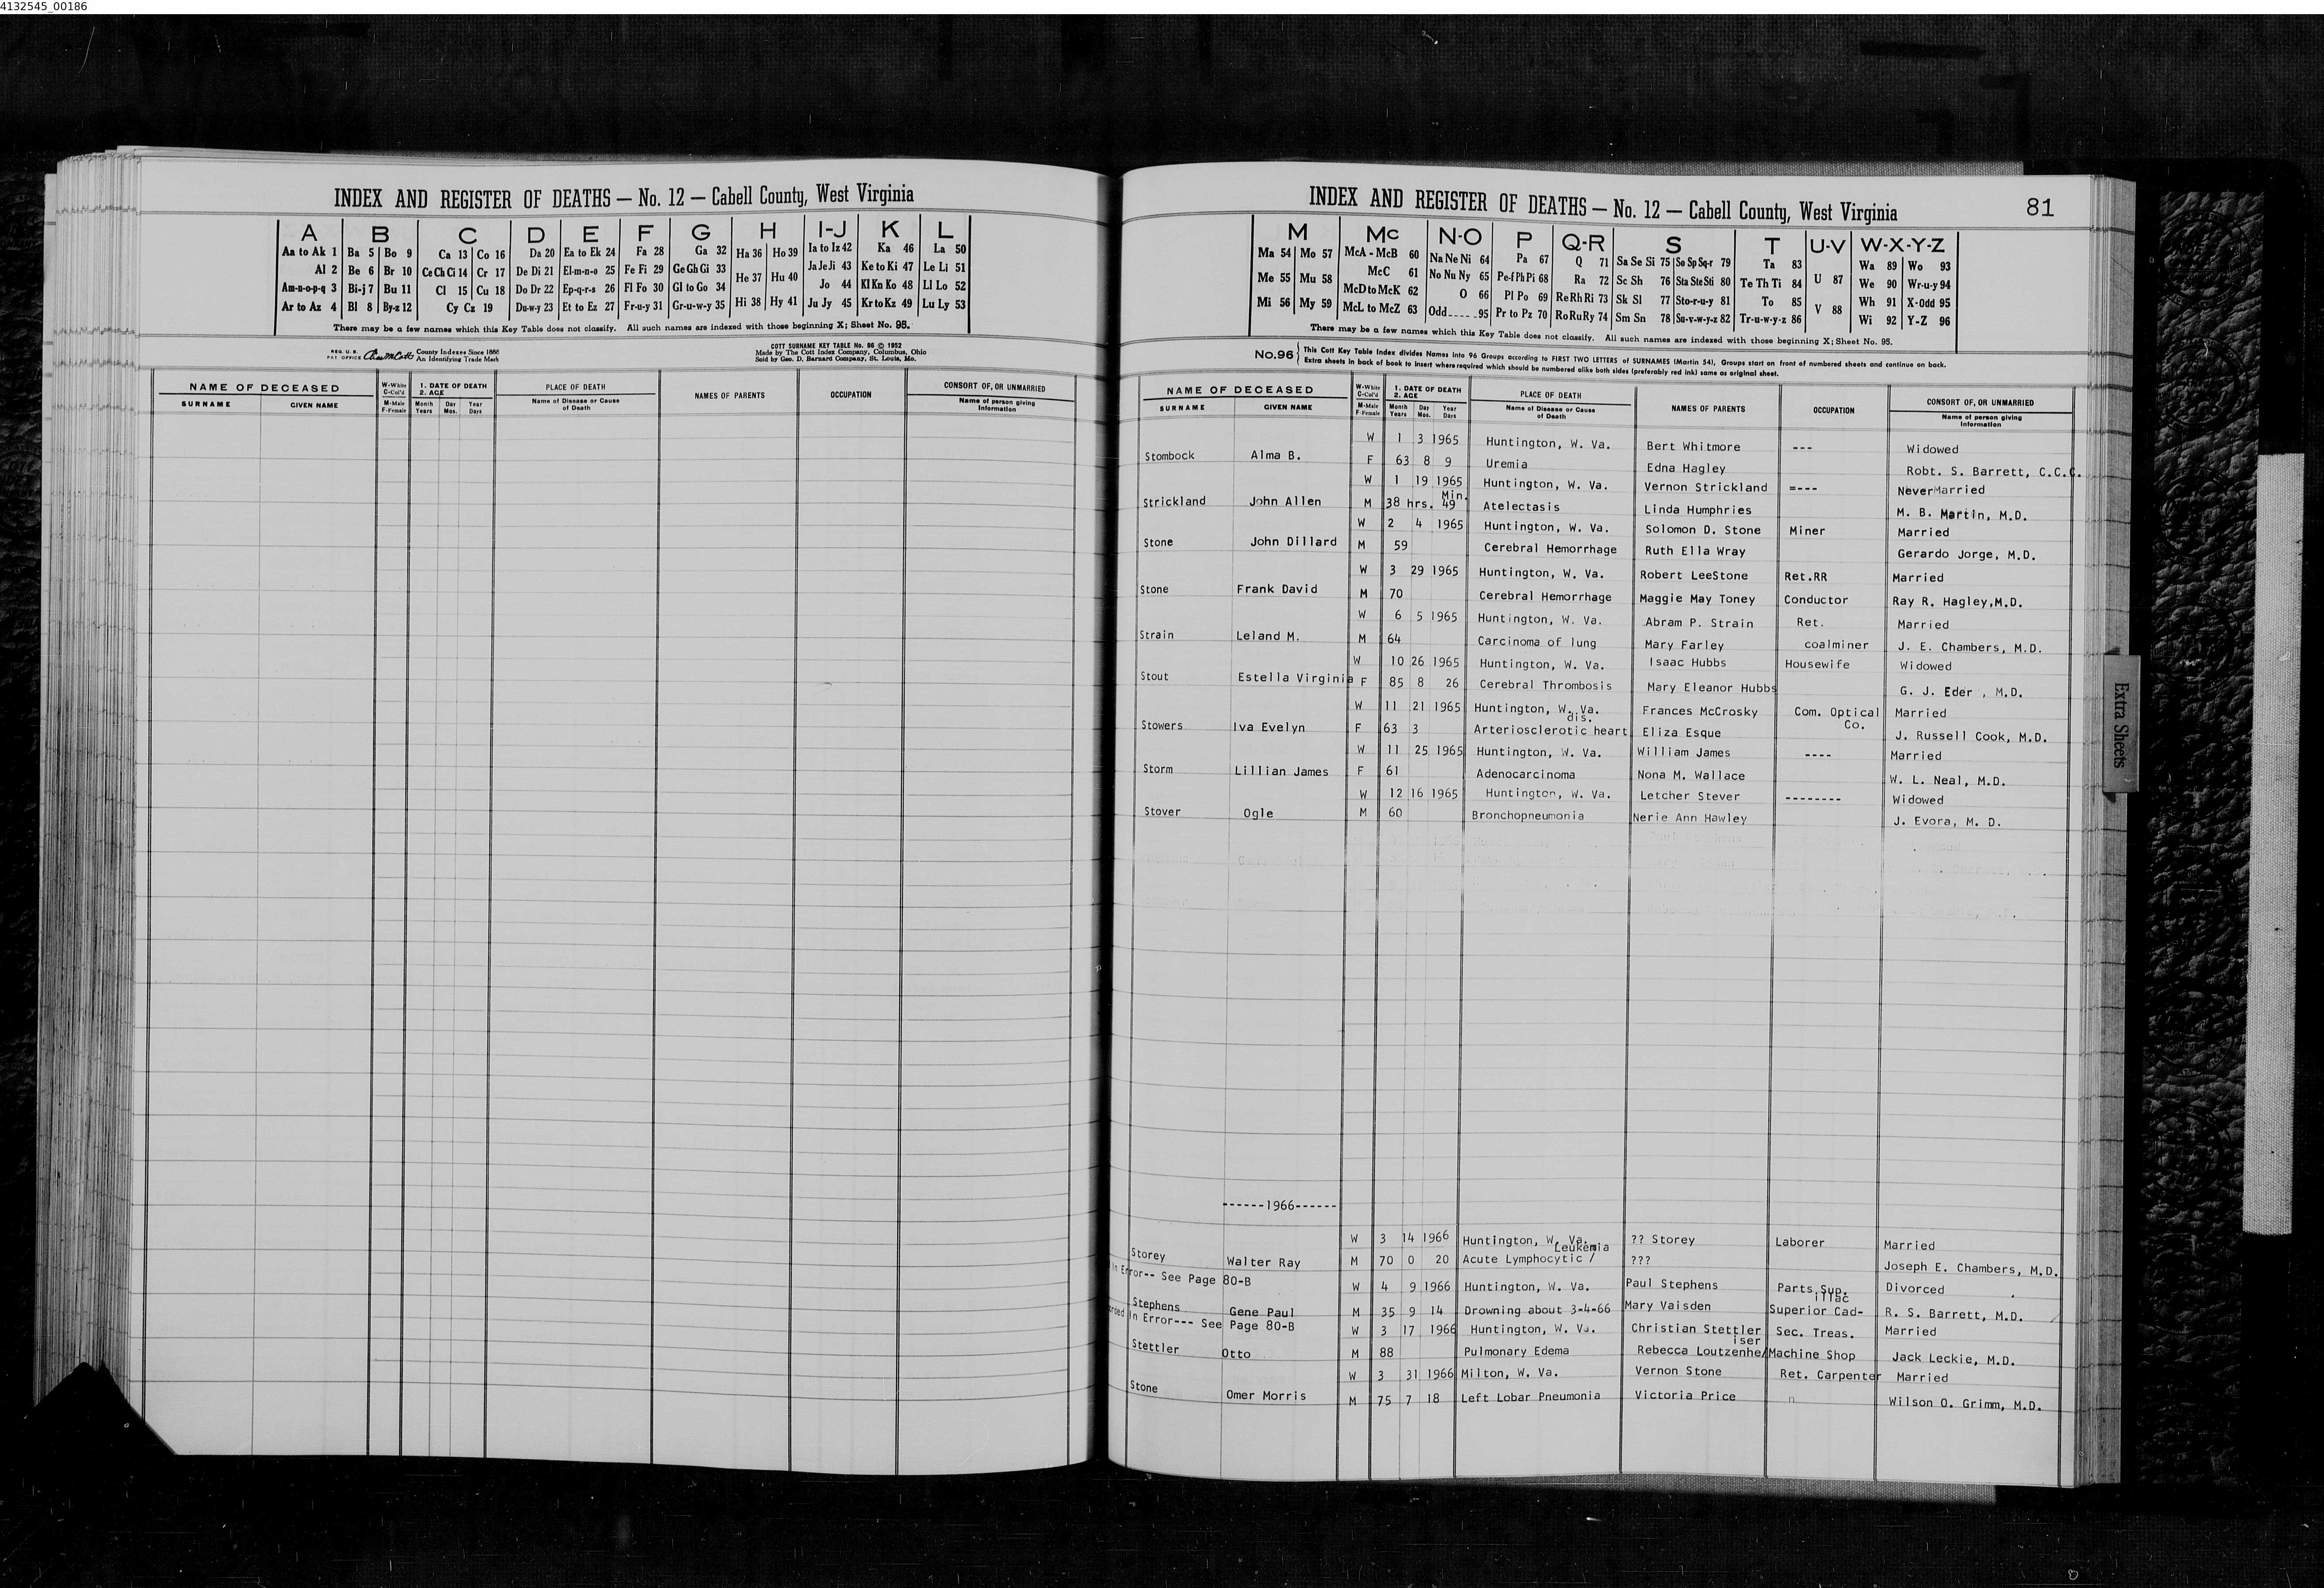 4132545_00186
INDEX AND REGISTER OF DEATHS — No. 12 — Cabell County, West Virginia
A B C D E F G H I-J K L
Aa to Ak 1 Ba 5 Bo 9 Ca 13 Co 16 Da 20 Ea to Ek 24 Fa 28 Ga 32 Ha 36 Ho 39 Ia to Iz 42 Ka 46 La 50
Al 2 Be 6 Br 10 Ce Ch Ci 14 Cr 17 De Di 21 El-m-n-o 25 Fe Fi 29 Ge Gh Gi 33 He 37 Hu 40 Ja Je Ji 43 Ke to Ki 47 Le Li 51
Am-n-o-p-q 3 Bi-j 7 Bu 11 Cl 15 Cu 18 Do Dr 22 Ep-q-r-s 26 Fl Fo 30 Gl to Go 34 Jo 44 Kl Kn Ko 48 Ll Lo 52
Ar to Az 4 Bl 8 By-z 12 Cy Cz 19 Du-w-y 23 Et to Ez 27 Fr-u-y 31 Gr-u-w-y 35 Hi 38 Hy 41 Ju Jy 45 Kr to Kz 49 Lu Ly 53
There may be a few names which this Key Table does not classify. All such names are indexed with those beginning X; Sheet No. 95.
REG. U.S. PAT. OFFICE County Indexes Since 1888 An Identifying Trade Mark
COTT SURNAME KEY TABLE No. 96 © 1952
Made by The Cott Index Company, Columbus, Ohio
Sold by Geo. D. Barnard Company, St. Louis, Mo.
NAME OF DECEASED W-White C-Col'd 1. DATE OF DEATH 2. AGE PLACE OF DEATH NAMES OF PARENTS OCCUPATION CONSORT OF, OR UNMARRIED
SURNAME GIVEN NAME M-Male F-Female Month Years Day Mos. Year Days Name of Disease or Cause of Death Name of person giving Information
INDEX AND REGISTER OF DEATHS — No. 12 — Cabell County, West Virginia 81
M Mc N-O P Q-R S T U-V W-X-Y-Z
Ma 54 Mo 57 McA - McB 60 Na Ne Ni 64 Pa 67 Q 71 Sa Se Si 75 So Sp Sq-r 79 Ta 83 Wa 89 Wo 93
Me 55 Mu 58 McC 61 No Nu Ny 65 Pe-f Ph Pi 68 Ra 72 Sc Sh 76 Sta Ste Sti 80 Te Th Ti 84 U 87 We 90 Wr-u-y 94
McD to McK 62 O 66 Pl Po 69 Re Rh Ri 73 Sk Sl 77 Sto-r-u-y 81 To 85 Wh 91 X-Odd 95
Mi 56 My 59 McL to McZ 63 Odd-----95 Pr to Pz 70 Ro Ru Ry 74 Sm Sn 78 Su-v-w-y-z 82 Tr-u-w-y-z 86 V 88 Wi 92 Y-Z 96
There may be a few names which this Key Table does not classify. All such names are indexed with those beginning X; Sheet No. 95.
No. 96 This Cott Key Table Index divides Names into 96 Groups according to FIRST TWO LETTERS of SURNAMES (Martin 54). Groups start on front of numbered sheets and continue on back.
Extra sheets in back of book to insert where required which should be numbered alike both sides (preferably red ink) same as original sheet.
NAME OF DECEASED W-White C-Col'd 1. DATE OF DEATH 2. AGE PLACE OF DEATH NAMES OF PARENTS OCCUPATION CONSORT OF, OR UNMARRIED
SURNAME GIVEN NAME M-Male F-Female Month Years Day Mos. Year Days Name of Disease or Cause of Death Name of person giving Information
W 1 3 1965 Huntington, W. Va. Bert Whitmore --- Widowed
Stombock Alma B. F 63 8 9 Uremia Edna Hagley Robt. S. Barrett, C.C.C.
W 1 19 1965 Huntington, W. Va. Vernon Strickland =--- Never Married
Strickland John Allen M 38 hrs. 49 Min. Atelectasis Linda Humphries M. B. Martin, M.D.
W 2 4 1965 Huntington, W. Va. Solomon D. Stone Miner Married
Stone John Dillard M 59 Cerebral Hemorrhage Ruth Ella Wray Gerardo Jorge, M.D.
W 3 29 1965 Huntington, W. Va. Robert LeeStone Ret.RR Married
Stone Frank David M 70 Cerebral Hemorrhage Maggie May Toney Conductor Ray R. Hagley,M.D.
W 6 5 1965 Huntington, W. Va. Abram P. Strain Ret. Married
Strain Leland M. M 64 Carcinoma of lung Mary Farley coalminer J. E. Chambers, M.D.
W 10 26 1965 Huntington, W. Va. Isaac Hubbs Housewife Widowed
Stout Estella Virginia F 85 8 26 Cerebral Thrombosis Mary Eleanor Hubbs G. J. Eder , M.D.
W 11 21 1965 Huntington, W. Va. Frances McCrosky Com. Optical Co. Married
Stowers Iva Evelyn F 63 3 Arteriosclerotic heart dis. Eliza Esque J. Russell Cook, M.D.
W 11 25 1965 Huntington, W. Va. William James ---- Married
Storm Lillian James F 61 Adenocarcinoma Nona M. Wallace W. L. Neal, M.D.
W 12 16 1965 Huntington, W. Va. Letcher Stever -------- Widowed
Stover Ogle M 60 Bronchopneumonia Nerie Ann Hawley J. Evora, M. D.
------1966------
W 3 14 1966 Huntington, W. Va. ?? Storey Laborer Married
Storey Walter Ray M 70 0 20 Acute Lymphocytic / Leukemia ??? Joseph E. Chambers, M.D.
in Error-- See Page 80-B
W 4 9 1966 Huntington, W. Va. Paul Stephens Parts Sup. Divorced
Stephens Gene Paul M 35 9 14 Drowning about 3-4-66 Mary Vaisden Superior Cad- illac R. S. Barrett, M.D.
in Error--- See Page 80-B
W 3 17 1966 Huntington, W. Va. Christian Stettler Sec. Treas. Married
Stettler Otto M 88 Pulmonary Edema Rebecca Loutzenhe/ iser Machine Shop Jack Leckie, M.D.
W 3 31 1966 Milton, W. Va. Vernon Stone Ret. Carpenter Married
Stone Omer Morris M 75 7 18 Left Lobar Pneumonia Victoria Price n Wilson O. Grimm, M.D.
Extra Sheets